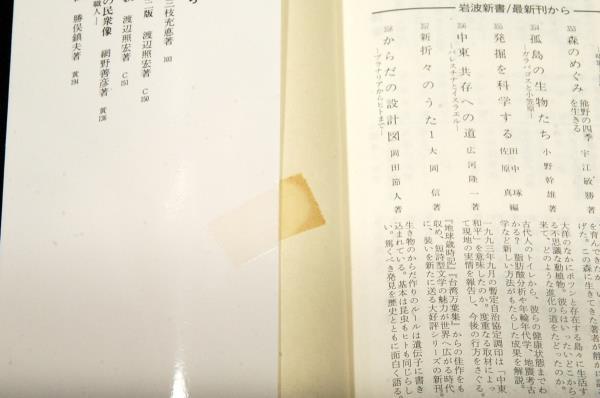 岩波新書/最新刊から
353 森のめぐみ 熊野の四季を生きる 宇江敏勝著
を育んできたか。
げた。この森に生きてきた著者が静かに語
354 孤島の生物たち ―ガラパゴスと小笠原― 小野幹雄著
大洋のなかにポツンと存在する島々に生活す
る不思議な動植物。彼らはいったいどこから
来て、どのような進化の道をたどったのか。
355 発掘を科学する 田中琢 佐原真 編
古代人のトイレから、彼らの健康状態までわ
かる? 脂肪酸分析や年輪年代学、地震考古
学など新しい方法がもたらした成果を解説。
356 中東 共存への道 ―パレスチナとイスラエル― 広河隆一著
一九九三年九月の暫定自治協定調印は「中東
和平」を意味したのか。度重なる取材によっ
て現地の実情を報告し、今後の行方をさぐる。
357 新折々のうた1 大岡信著
『地球歳時記』『台湾万葉集』からの佳作をも
収め、短詩型文学の魅力が世界へ広がる時代
に、装いを新たに送る大好評シリーズの新刊。
358 からだの設計図 ―プラナリアからヒトまで― 岡田節人著
生き物のからだ作りのルールは遺伝子に書き
込まれている。基本は昆虫もヒトも同じらし
い。驚くべき発見を歴史とともに面白く語る。
ら
三枝充悳著 103
渡辺照宏著 C150
二版 渡辺照宏著 C151
の民衆像 網野善彦著 黄136
職人―
勝俣鎮夫著 黄194